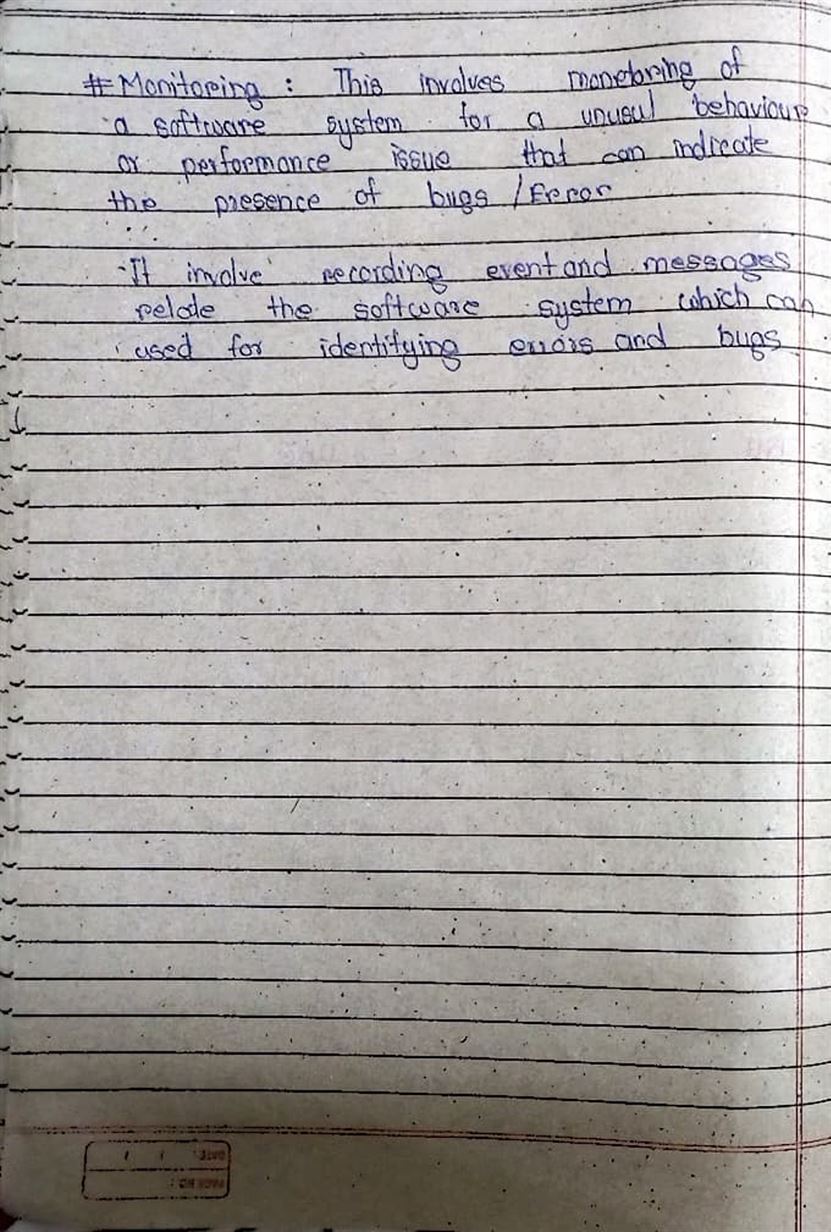 # Monitoring : This involves monetoring of
a software system for a unusul behaviour
or performance issue that can indicate
the presence of bugs / Error
It involve recording event and messages
relate the software system which can
used for identifying errors and bugs
DATE :
PAGE NO :